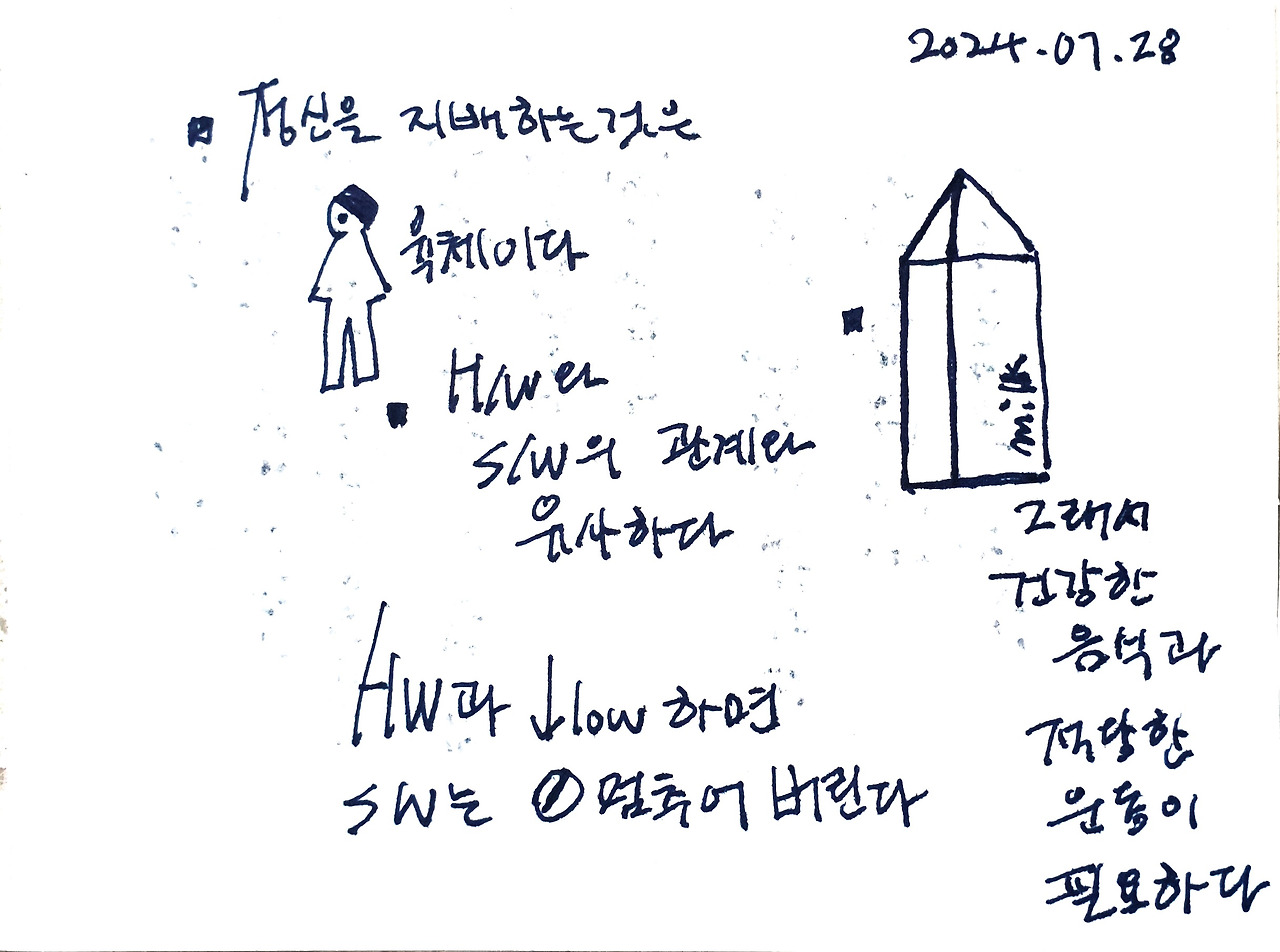 2024.07.28
정신을 지배하는것은
육체이다
H/W와
S/W의 관계와
유사하다
HW과 ↓low 하면
SW는 멈추어 버린다
milk
그래서
건강한
음식과
적당한
운동이
필요하다